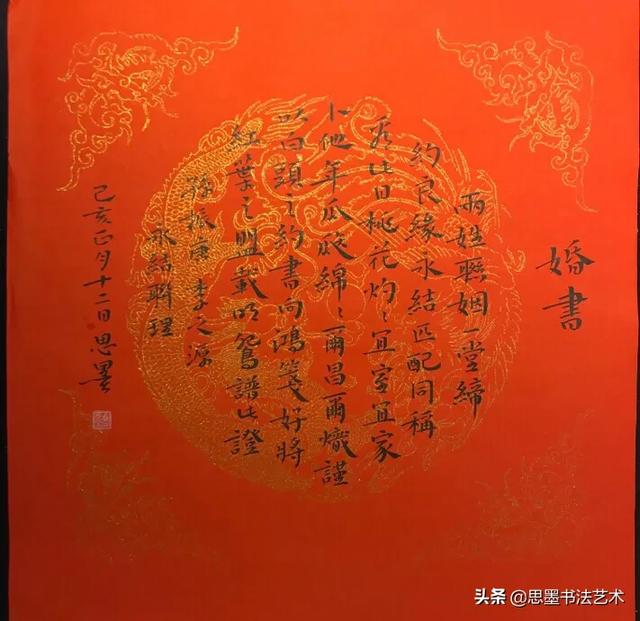 婚書
兩姓聯姻一堂締
約良緣永結匹配同稱
看此日桃花灼〻宜室宜家
卜他年瓜瓞綿〻爾昌爾熾謹
以白頭之約書向鴻箋好將
紅葉之盟載明鴛譜此證
孫振 李 源
永結聯理
己亥正月十二日思墨
头条 @思墨书法艺术